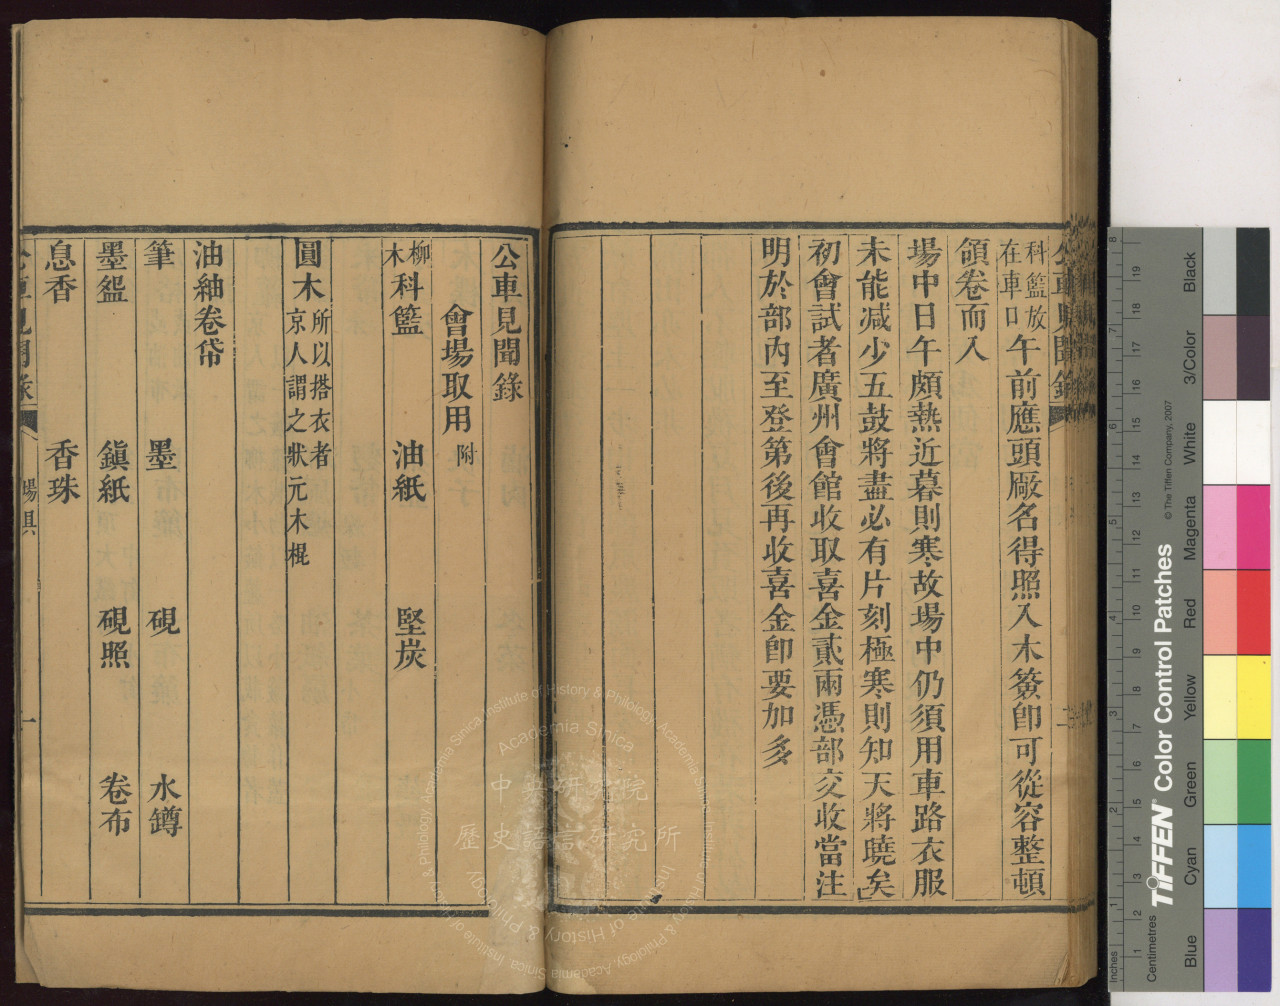 科籃放
在車口
午前應頭厰名得照入木簽卽可從容整頓
領卷而入
場中日午頗熱近暮則寒故場中仍須用車路衣服
未能減少五鼓將盡必有片刻極寒則知天將曉矣
初會試者廣州會館收取喜金貳兩憑部交收當注
明於部內至登第後再收喜金卽要加多
公車見聞錄
會場取用 附
柳木科籃 油紙 堅炭
圓木 所以搭衣者
京人謂之狀元木棍
油紬卷帒
筆 墨 硯 水罇
墨盌 鎮紙 硯照 卷布
息香 香珠
公車見聞錄 場具 一
公車見聞錄 二
Academia Sinica
中央研究院
歷史語言研究所
Institute of History & Philology, Academia Sinica
TIFFEN® Color Control Patches
© The Tiffen Company, 2007
Inches
Centimetres
Blue
Cyan
Green
Yellow
Red
Magenta
White
3/Color
Black